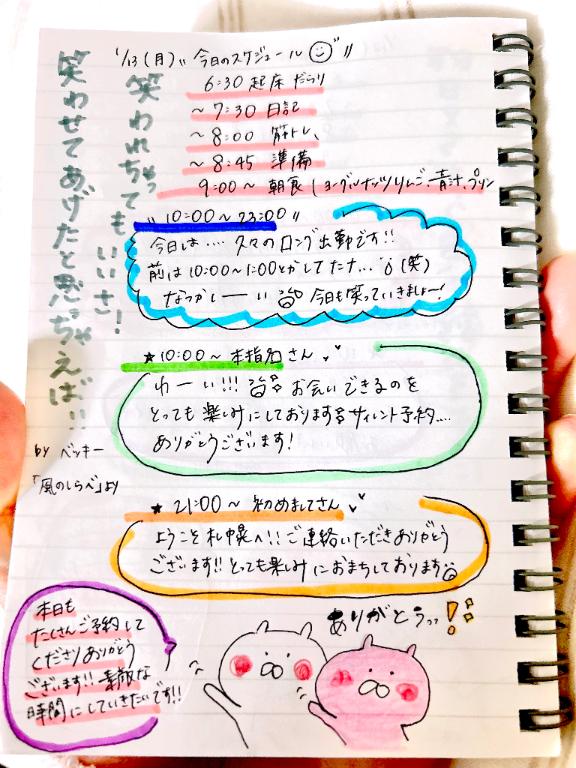 1/13(月)〃 今日のスケジュール 〃
6:30 起床 だらり
~7:30 日記
~8:00 筋トレ、
~8:45 準備
9:00~ 朝食(ヨーグルナッツりんご、青汁、プリン
笑われちゃっても いいさ!
笑わせてあげたと思っちゃえば!!
by ベッキー
「風のしらべ」より
〃10:00~23:00〃
今日は.... 久々のロング出勤です!!
前は10:00~1:00とかしてたナ...(笑)
なつかしーい 今日も笑っていきましょー!
★10:00~ 本指名さん
わーい!!! お会いできるのを
とっても楽しみにしております サイレント予約....
ありがとうございます!
★21:00~ 初めましてさん
ようこそ札幌へ!! ご連絡いただきありがとう
ございます!! とっても楽しみにおまちしております
ありがとうっっ!
本日も
たくさんご予約して
くださりありがとう
ございます!! 素敵な
時間にしていきたいです!!